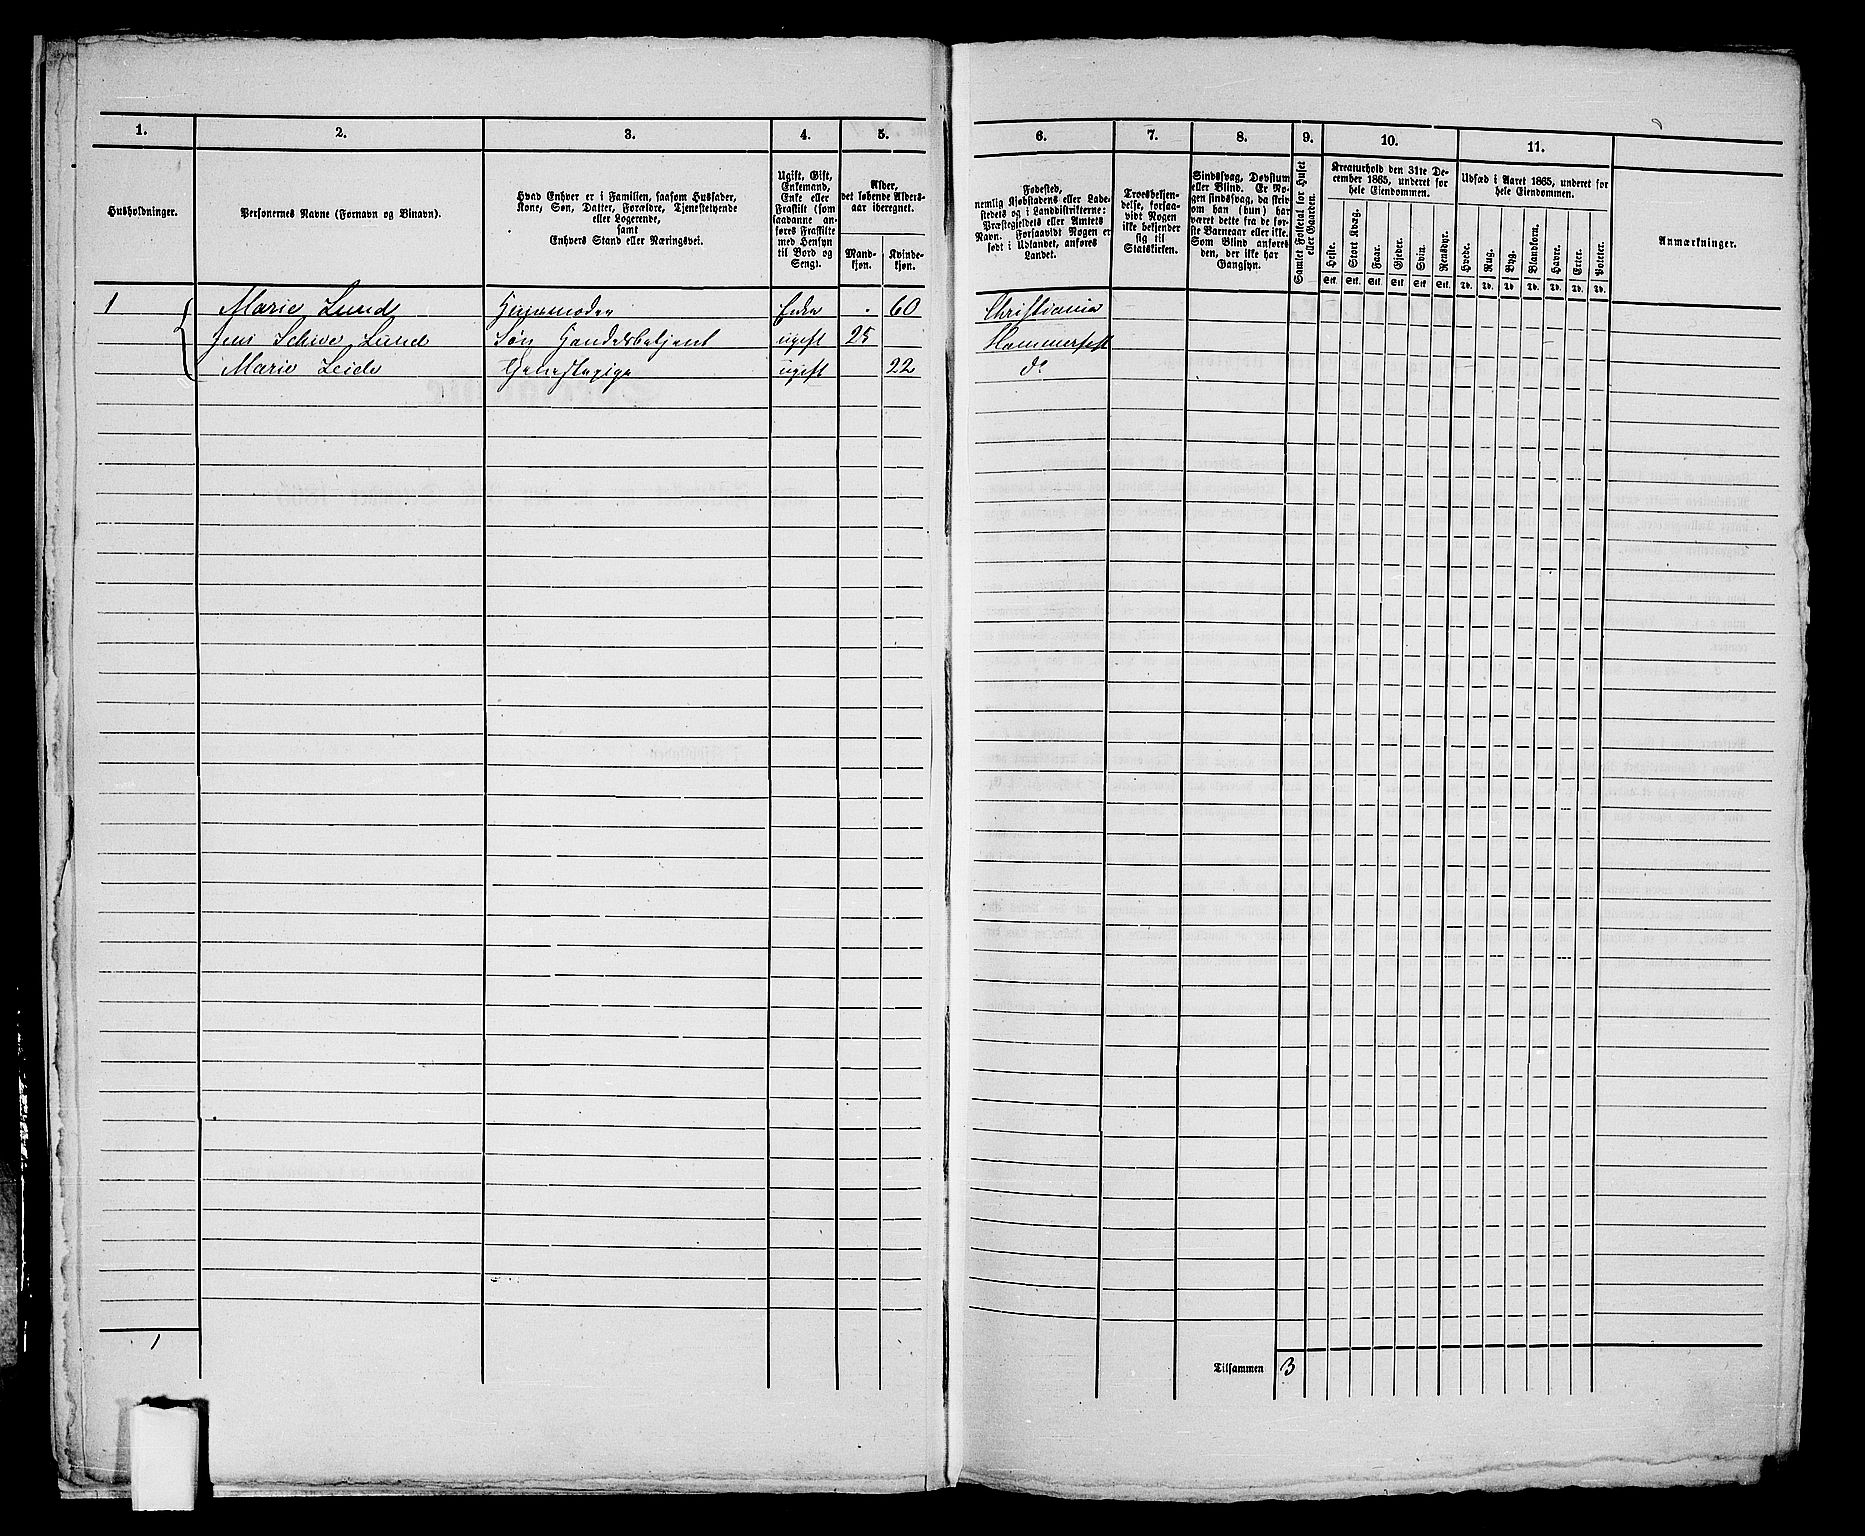 1. 2. 3. 4. 5. 6. 7. 8. 9. 10. 11.
Husholdninger.
Personernes Navne (Fornavn og Binavn).
Hvad Enhver er i Familien, saasom Husfader,
Kone, Søn, Datter, Forældre, Tjenestetyende
eller Logerende,
samt
Enhvers Stand eller Næringsvei.
Ugift, Gift,
Enkemand,
Enke eller
Fraskilt (som
saadanne an-
føres Fraskilte
med Hensyn
til Bord og
Seng).
Alder,
det løbende Alders-
aar iberegnet.
Mand-
kjøn.
Kvinde-
kjøn.
Fødested,
nemlig Kjøbstadens eller Lade-
stedets og i Landdistrikterne:
Præstegjeldets eller Amtets
Navn. Forsaavidt Nogen er
født i Udlandet, anføres
Landet.
Troesbekjen-
delse, forsaa-
vidt Nogen
ikke bekjender
sig til
Statskirken.
Sindssvag, Døvstum
eller Blind. Er No-
gen sindssvag, da skriv
om han (hun) har
været dette fra de før-
ste Barneaar eller ikke.
Som Blind anføres
den, der ikke har
Gangsyn.
Samlet Folketal for Huset
eller Gaarden.
Kreaturhold den 31te De-
cember 1865, underet for
hele Eiendommen.
Heste. Stort Kvæg. Faar. Gjeder. Svin. Rensdyr.
Stk. Stk. Stk. Stk. Stk. Stk.
Udsæd i Aaret 1865, underet for
hele Eiendommen.
Hvede. Rug. Byg. Blandkorn. Havre. Erter. Poteter.
Td. Td. Td. Td. Td. Td. Td.
Anmærkninger.
1 Marie Lund Huusmoder Enke 60 Christiania
Jens Schive Lund Søn Handelsbetjent ugift 25 Hammerfest
Marie Leide Tjenestepige ugift 22 do
1
Tilsammen 3